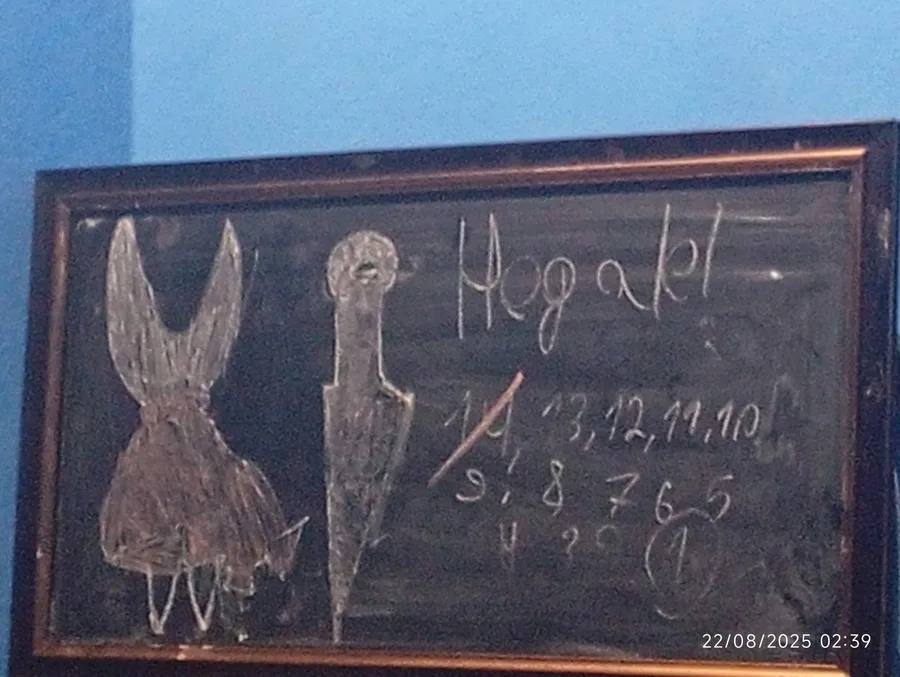 14, 13, 12, 11, 10
9, 8 7 6 5
4 3 2 1
22/08/2025 02:39